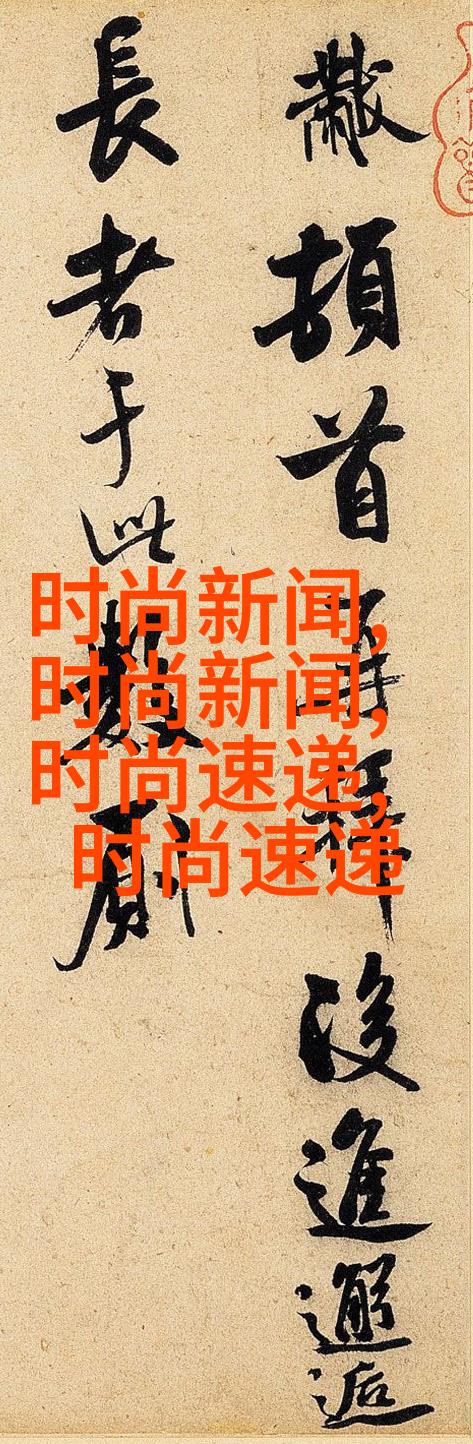 黻頓首再拜後進邂逅
長者于此數
时尚新闻,
时尚新闻,
时尚速递,
时尚速递